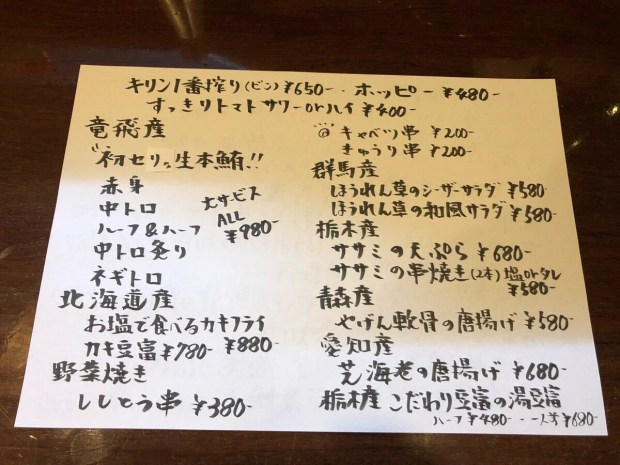 キリン1番搾り(ビン)¥650-・ホッピー¥480-
すっきりトマトサワーorハイ ¥400-
竜飛産
初セリ 生本鮪!!
赤身
中トロ
ハーフ&ハーフ
中トロ炙り
ネギトロ
大サービス
ALL
¥980-
北海道産
お塩で食べるカキフライ
¥880-
カキ豆富 ¥780-
野菜焼き
ししとう串 ¥380-
@ キャベツ串 ¥200-
きゅうり串 ¥200-
群馬産
ほうれん草のシーザーサラダ ¥580-
ほうれん草の和風サラダ ¥580-
栃木産
ササミの天ぷら ¥680-
ササミの串焼き(2本) 塩orタレ
¥580-
青森産
やげん軟骨の唐揚げ ¥580-
愛知産
芝海老の唐揚げ ¥680-
栃木産 こだわり豆富の湯豆富
ハーフ ¥480-・一人前 ¥680-